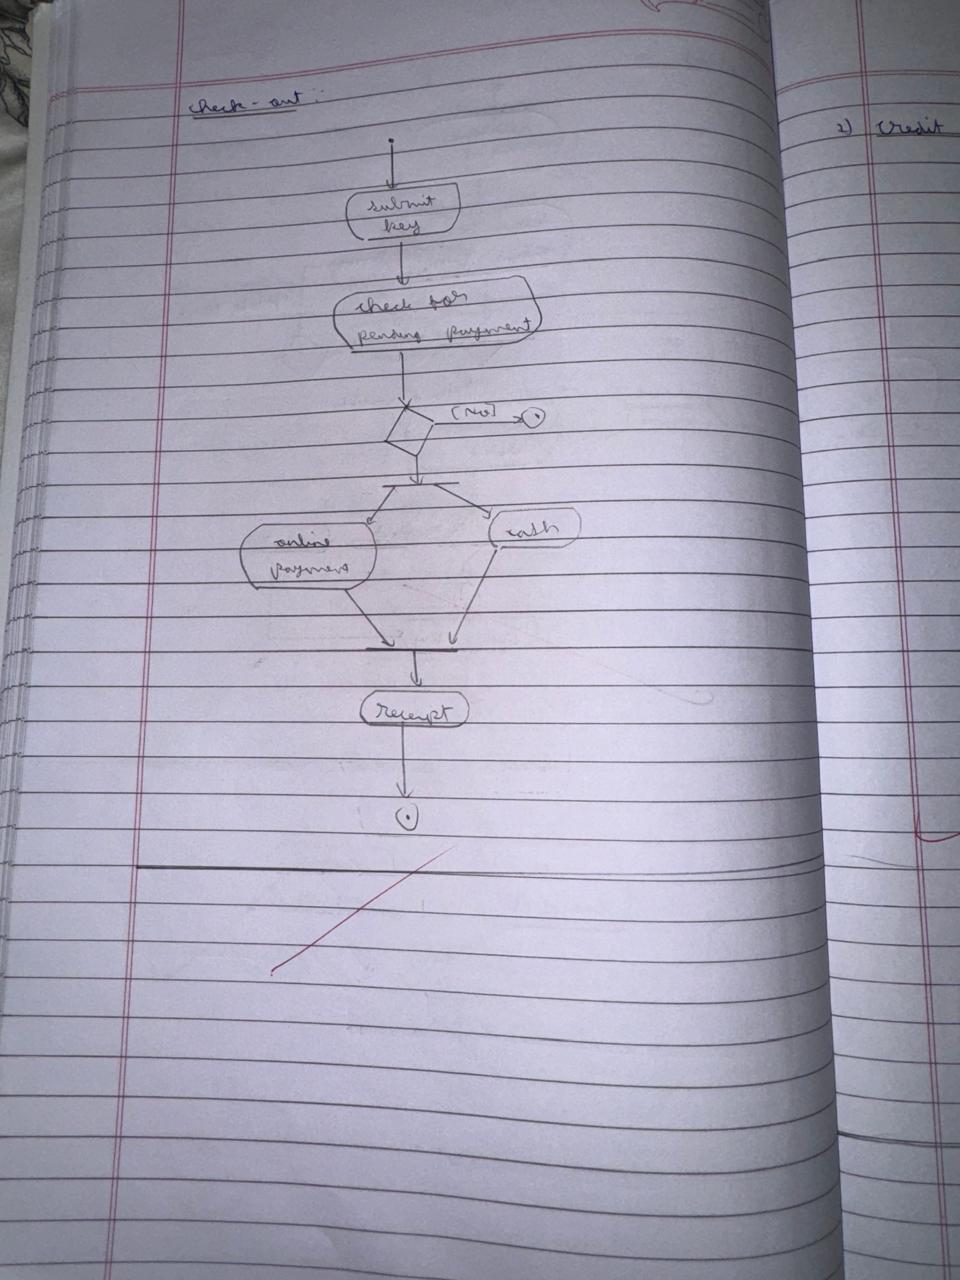 check-out :
submit
key
check for
pending payment
[No]
online
payment
cash
receipt
2) Credit